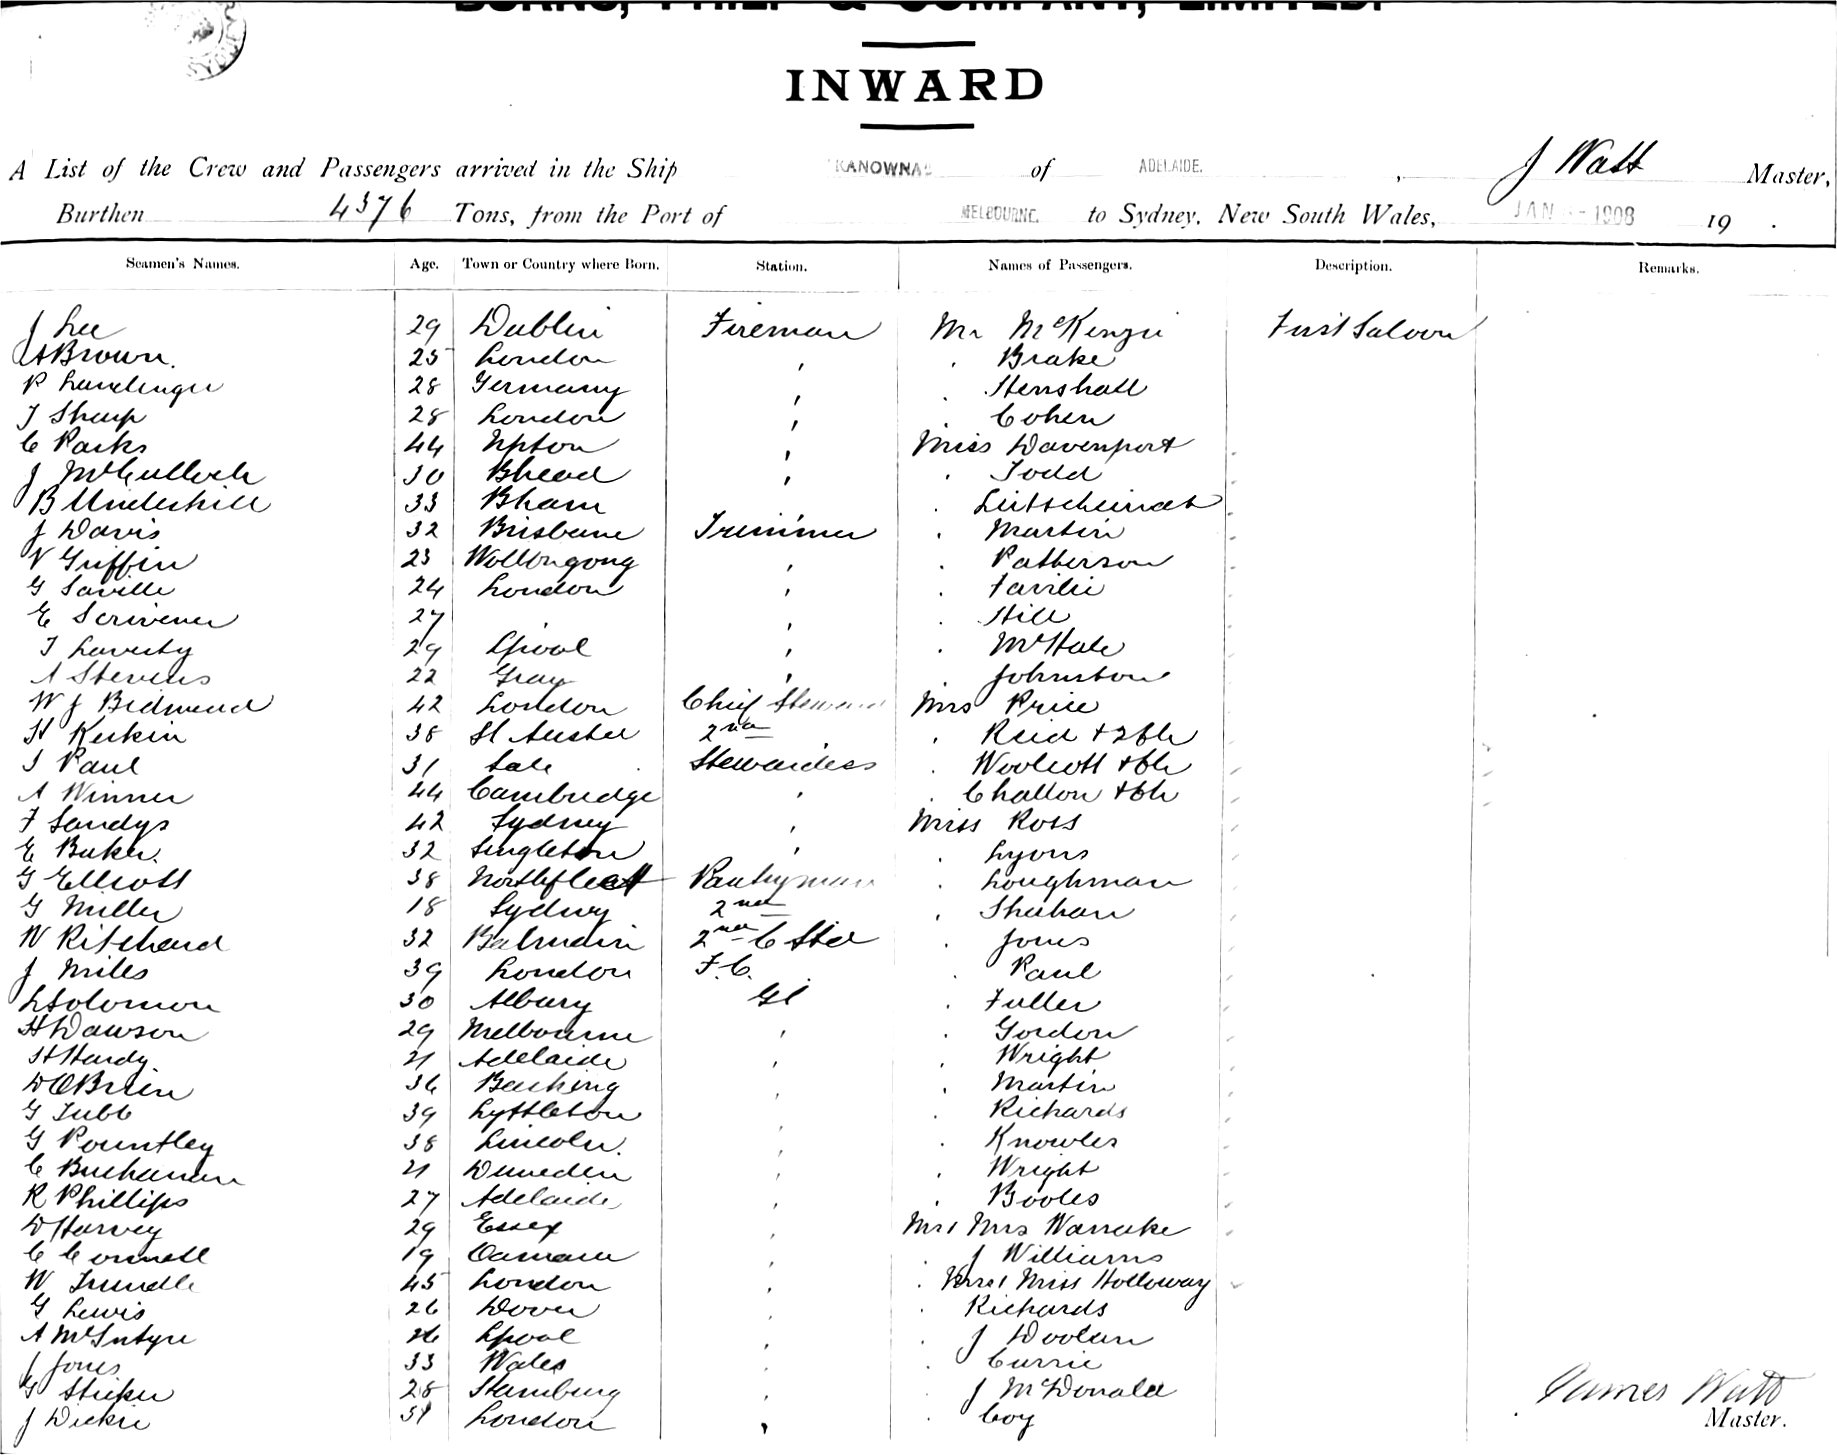 BURNS, PHILP & COMPANY, LIMITED.
INWARD
A List of the Crew and Passengers arrived in the Ship KANOWNA of ADELAIDE. , J Watt Master,
Burthen 4376 Tons, from the Port of MELBOURNE. to Sydney, New South Wales, JAN 1908 19 .
Seamen's Names. Age. Town or Country where Born. Station. Names of Passengers. Description. Remarks.
J Lee 29 Dublin Fireman Mr McKenzie First Saloon
Brown. 25 London , . Brake
P 28 Germany , . Henshall
T Sharp 28 London , . Cohen
C Parks 44 Upton , Miss Davenport
J McCulloch 30 Bhead , . Todd
B Underhill 33 Bham .
J Davis 32 Brisbane Trimmer . Martin
V Griffin 23 Wollongong , . Patterson
G Saville 24 London , .
E Scrivener 27 , . Hill
T Laverty 29 Lpool , . McHale
A Stevens 22 Gray , . Johnston
W J 42 London Chief Steward Mrs Price
H Keskin 38 St Austel 2nd . Reid + 2 Ch
J Paul 31 Sale Stewardess . Woolcott + Ch
A Winner 44 Cambridge , . Challon + Ch
F Sandys 42 Sydney , Miss Ross
E Baker. 32 Singleton , . Lyons
G Elliott 38 Northfleet Pantryman . Loughman
G Miller 18 Sydney 2nd . Shehan
W Ritchard 32 Balmain 2nd C Std . Jones
J Miles 39 London F.C. . Paul
L Solomon 30 Albury Gl . Fuller
H Dawson 29 Melbourne , . Gordon
H Hardy 21 Adelaide , . Wright
D OBrien 36 Barking , . Martin
G Tubb 39 Lyttleton . Richards
G Pountley 38 Lincoln. , . Knowles
C Buchanan 21 Dunedin , . Wright
R Phillips 27 Adelaide , . Booles
D Harvey 29 Essex , Mr & Mrs Warnake
C Connell 19 Oamaru , . J Williams
W Trundle 45 London , . Mrs & Miss Holloway
G Lewis 26 Dover , . Richards
A McIntyre 26 Lpool , . J Doolan
J Jones 33 Wales , . Currie
G Stricker 28 Hamburg , . J McDonald
J Dickie 31 London , . Coy
James Watt
Master.